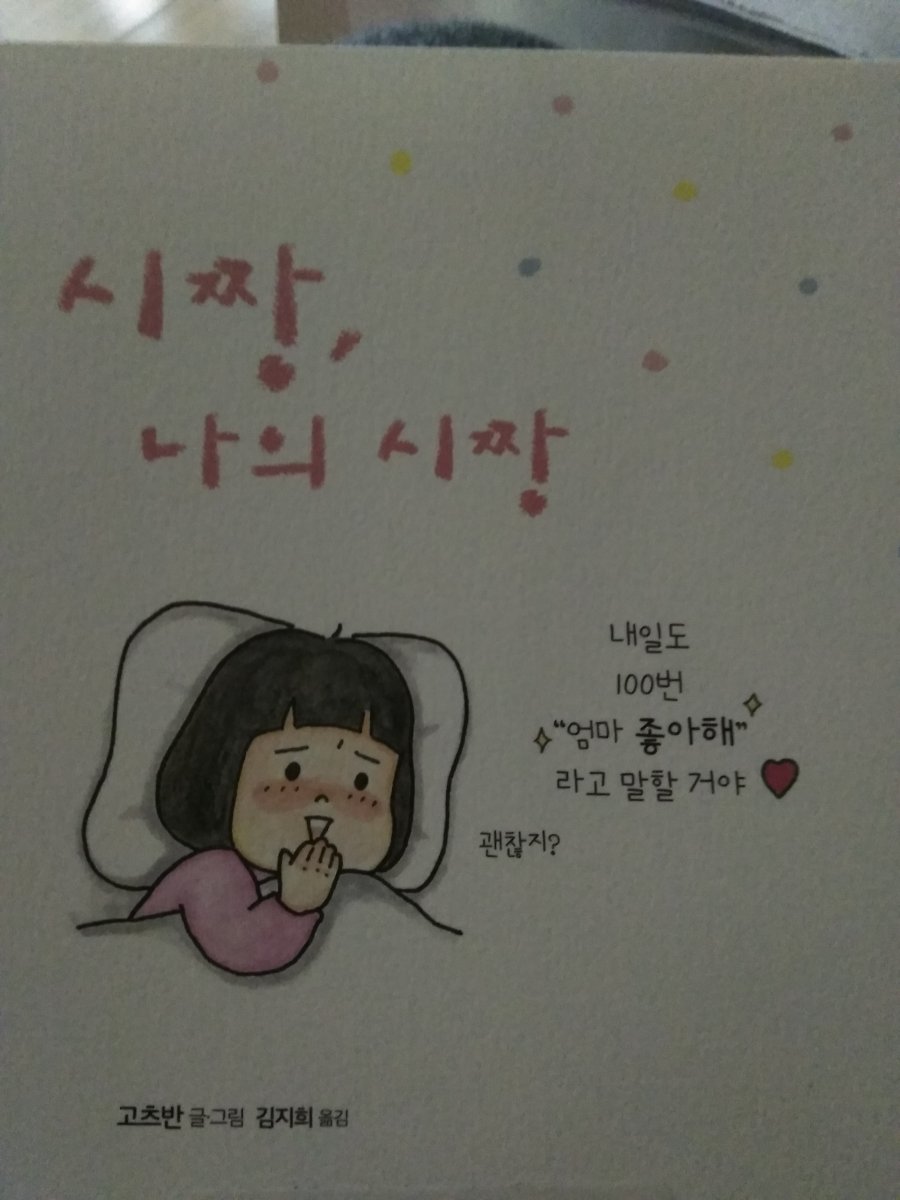 시짱,
나의 시짱
내일도
100번
“엄마 좋아해”
라고 말할 거야
괜찮지?
고츠반 글·그림 김지희 옮김